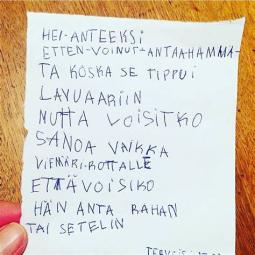 HEI-ANTEEKSI
ETTEN-VOINUT-ANTAAHAMMA-
TA KOSKA SE TIPPUI
LAVUAARIIN
MUTTA VOISITKO
SANOA VAIKKA
VIEMÄRI-ROTTALLE
ETTÄ VOISIKO
HÄN ANTA RAHAN
TAI SETELIN